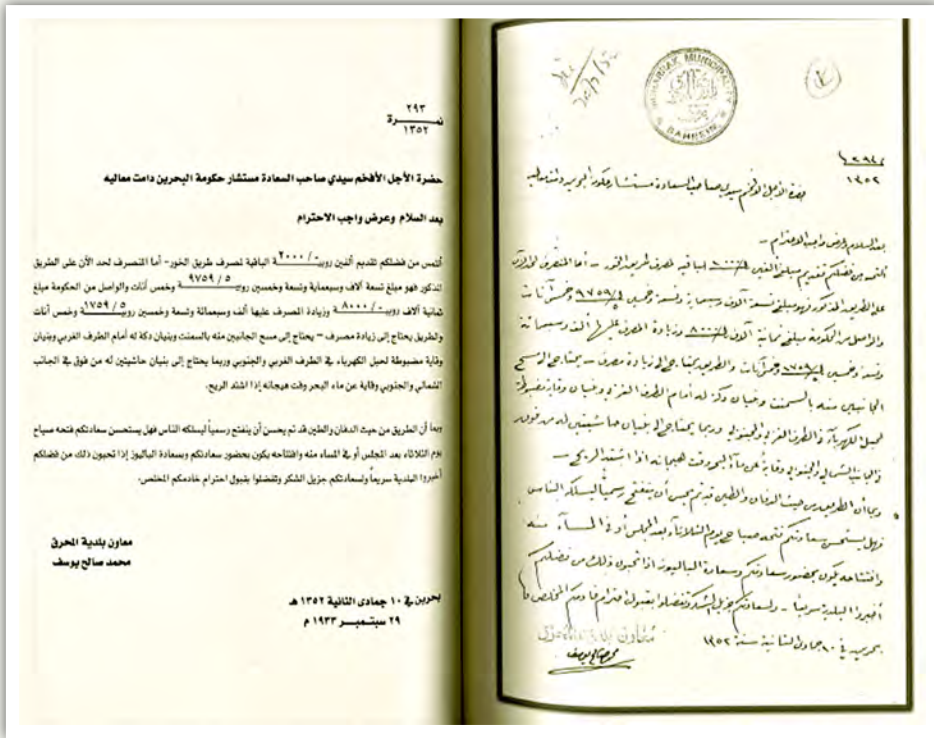 MUHARRAK MUNICIPALITY
BAHREIN
١٣٥٢
حضرة الأجل الأفخم سيدي صاحب السعادة مستشار حكومة البحرين دامت معاليه
بعد السلام وعرض واجب الاحترام –
ألتمس من فضلكم تقديم مبلغ ألفين ٢٠٠٠ الباقية لمصرف طريق الخور – أما المتصرف لحد الآن
على الطريق المذكور فهو مبلغ تسعة آلاف وسبعماية وتسعة وخمسين ٩٧٥٩ وخمس آنات
والواصل من الحكومة مبلغ ثمانية آلاف ٨٠٠٠ وزيادة المصرف عليها ألف وسبعمائة
وتسعة وخمسين ١٧٥٩ وخمس آنات والطريق يحتاج إلى زيادة مصرف – يحتاج إلى مسح
الجانبين منه بالسمنت وبنيان دكة له أمام الطرف الغربي وبنيان وقاية مضبوطة
لحبل الكهرباء في الطرف الغربي والجنوبي وربما يحتاج إلى بنيان حاشيتين له من فوق
في الجانب الشمالي والجنوبي وقاية عن ماء البحر وقت هيجانه إذا اشتد الريح –
وبما أن الطريق من حيث الدفان والطين قد تم يحسن أن ينفتح رسمياً ليسلكه الناس
فهل يستحسن سعادتكم فتحه صباح يوم الثلاثاء بعد المجلس أو في المساء منه
وافتتاحه يكون بحضور سعادتكم وسعادة الباليوز إذا تحبون ذلك من فضلكم
أخبروا البلدية سريعاً – ولسعادتكم جزيل الشكر وتفضلوا بقبول احترام خادمكم المخلص
بحرين في ١٠ جمادى الثانية سنة ١٣٥٢
معاون بلدية المحرق
محمد صالح يوسف
نمـــرة ٢٩٣
١٣٥٢
حضرة الأجل الأفخم سيدي صاحب السعادة مستشار حكومة البحرين دامت معاليه
بعد السلام وعرض واجب الاحترام
ألتمس من فضلكم تقديم ألفين روبيـ ٢٠٠٠/٠ ـة الباقية لمصرف طريق الخور– أما المتصرف لحد الأن على الطريق
المذكور فهو مبلغ تسعة آلاف وسبعماية وتسعة وخمسين روبيـ ٩٧٥٩/٥ ـة وخمس أنات والواصل من الحكومة مبلغ
ثمانية آلاف روبيـ ٨٠٠٠/٠ ـة وزيادة المصرف عليها ألف وسبعمائة وتسعة وخمسين روبيـ ١٧٥٩/٥ ـة وخمس أنات
والطريق يحتاج إلى زيادة مصرف – يحتاج إلى مسح الجانبين منه بالسمنت وبنيان دكة له أمام الطرف الغربي وبنيان
وقاية مضبوطة لحبل الكهرباء في الطرف الغربي والجنوبي وربما يحتاج إلى بنيان حاشيتين له من فوق في الجانب
الشمالي والجنوبي وقاية عن ماء البحر وقت هيجانه إذا اشتد الريح.
وبما أن الطريق من حيث الدفان والطين قد تم يحسن أن ينفتح رسمياً ليسلكه الناس فهل يستحسن سعادتكم فتحه صباح
يوم الثلاثاء بعد المجلس أو في المساء منه وافتتاحه يكون بحضور سعادتكم وبسعادة الباليوز إذا تحبون ذلك من فضلكم
أخبروا البلدية سريعاً ولسعادتكم جزيل الشكر وتفضلوا بقبول احترام خادمكم المخلص.
معاون بلدية المحرق
محمد صالح يوسف
بحرين في ١٠ جمادى الثانية ١٣٥٢ هـ
٢٩ سبتمبـر ١٩٣٣ م